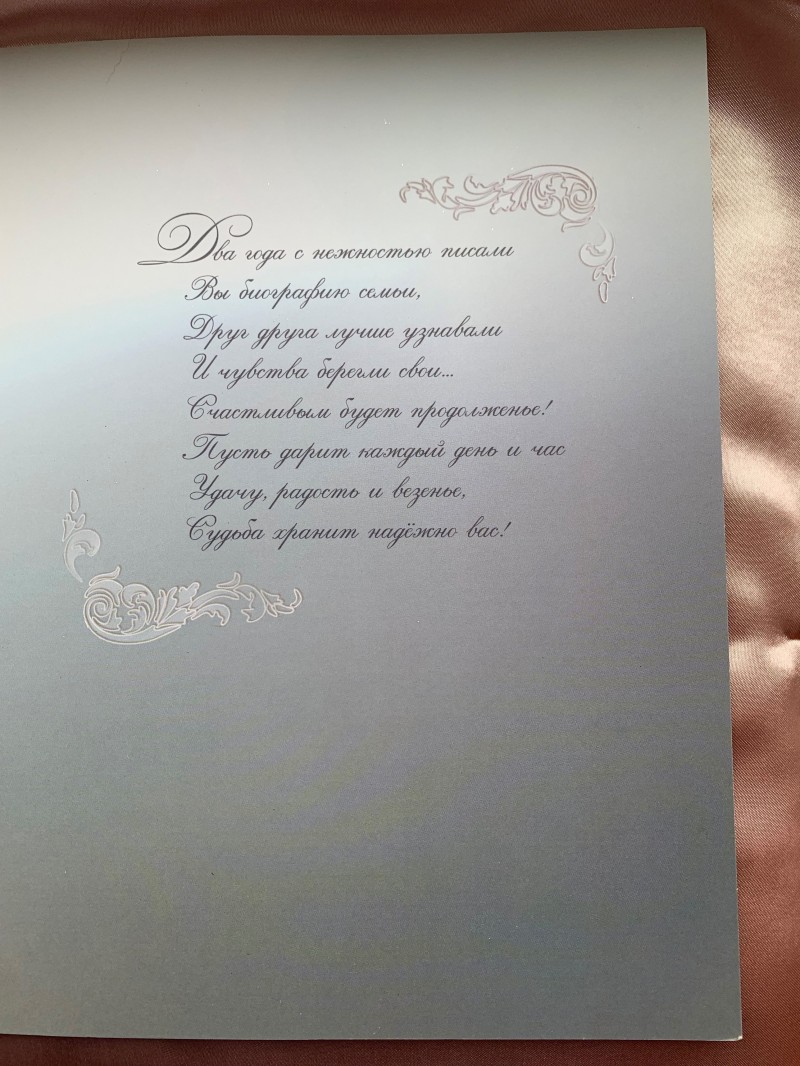 Два года с нежностью писали
Вы биографию семьи,
Друг друга лучше узнавали
И чувства берегли свои...
Счастливым будет продолженье!
Пусть дарит каждый день и час
Удачу, радость и везенье,
Судьба хранит надёжно вас!